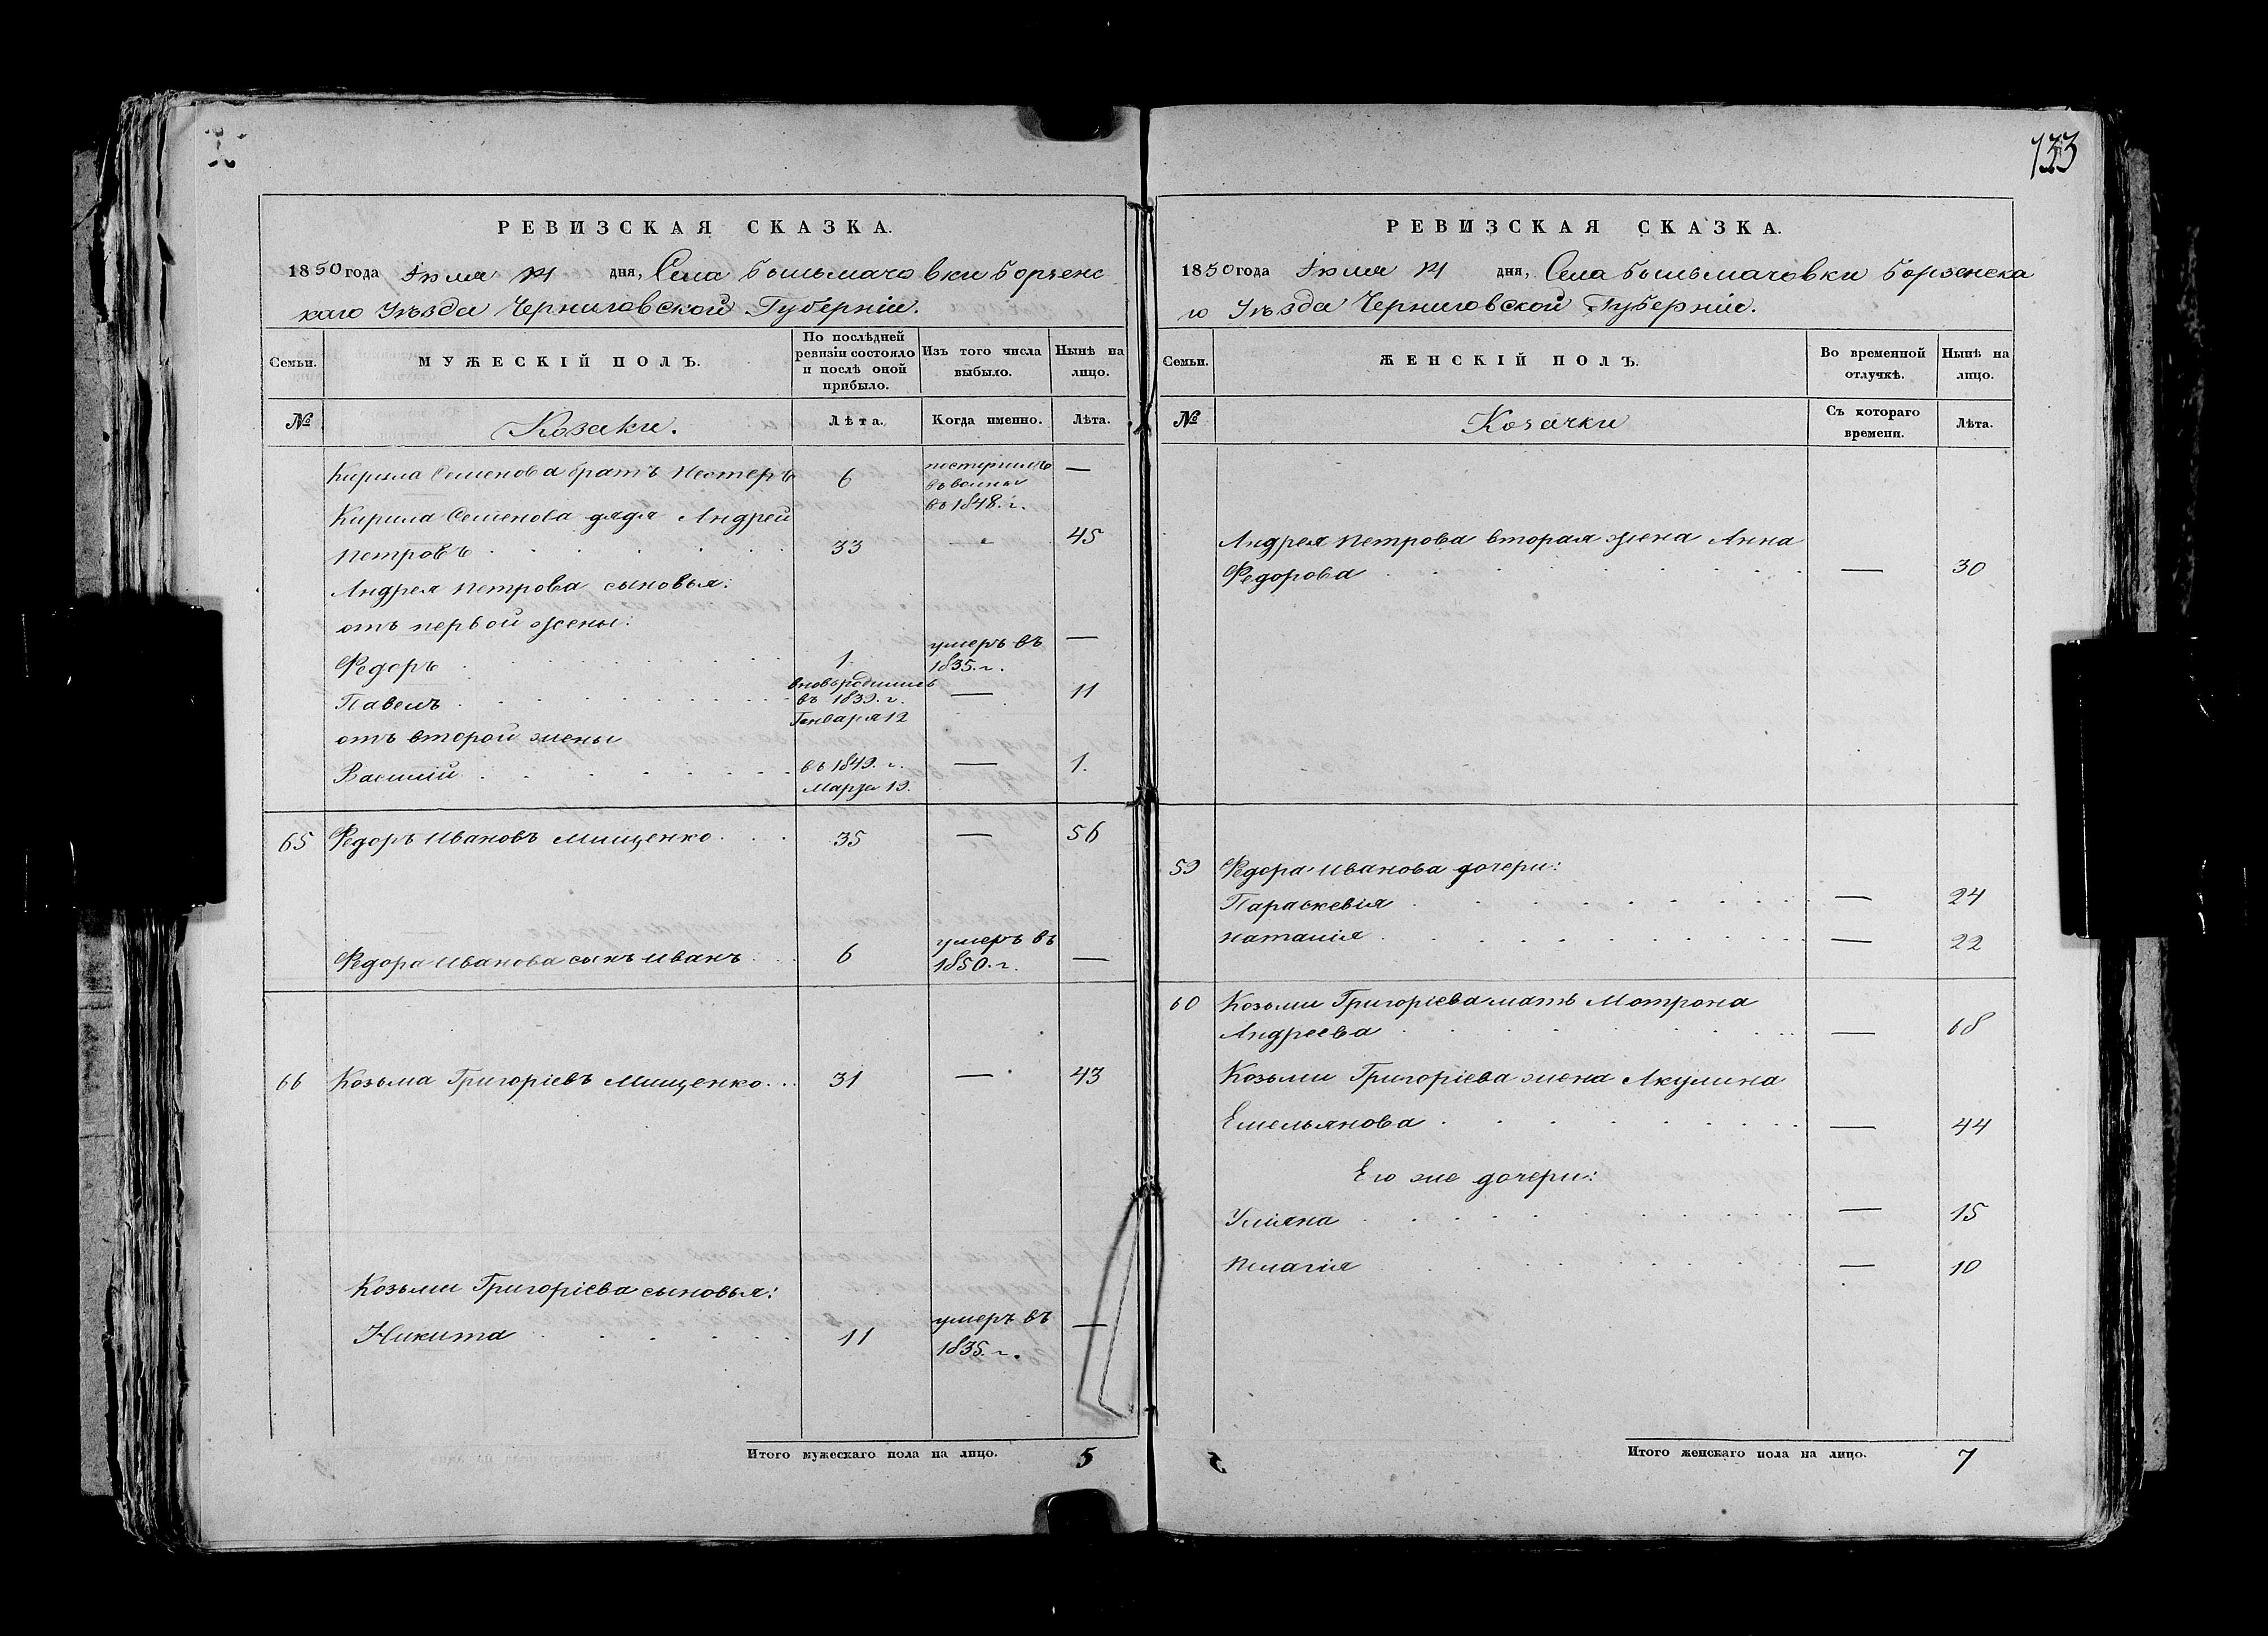 133
РЕВИЗСКАЯ СКАЗКА.
1850 года Іюля 14 дня, Села Бильмачовки Борзенс
каго Уѣзда Черниговской Губерніи.
Семьи.
МУЖЕСКІЙ ПОЛЪ.
По послѣдней
ревизіи состояло
и послѣ оной
прибыло.
Изъ того числа
выбыло.
Нынѣ на
лицо.
№
Козаки.
Лѣта.
Когда именно.
Лѣта.
Кирила Семенова братъ Нестеръ 6 —
въ 1848. г.
Кирила Семенова дядя Андрей
Петровъ 33 — 45
Андрея Петрова сыновья:
отъ первой жены:
Федоръ 1 умеръ въ 1835. г. —
Павелъ вновьродились въ 1839. г. Генваря 12 — 11
отъ второй жены
Василій въ 1849. г. Марта 19. — 1.
65 Федоръ Ивановъ Мищенко 35 — 56
Федора Иванова сынъ Иванъ 6 умеръ въ 1850. г. —
66 Козьма Григоріевъ Мищенко 31 — 43
Козьми Григоріева сыновья:
Никита 11 умеръ въ 1835. г. —
Итого мужескаго пола на лицо. 5
РЕВИЗСКАЯ СКАЗКА.
1850 года Іюля 14 дня, Села Бильмачовки Борзенска
го Уѣзда Черниговской Губерніи.
Семьи.
ЖЕНСКІЙ ПОЛЪ.
Во временной
отлучкѣ.
Нынѣ на
лицо.
№
Козачки
Съ котораго
времени.
Лѣта.
Андрея Петрова вторая жена Анна
Федорова — 30
59 Федора Иванова дочери:
Параскевія — 24
Наталія — 22
60 Козьми Григоріева мать Мотрона
Андреева — 68
Козьми Григоріева жена Акулина
Емельянова — 44
Его же дочери:
Уліяна — 15
Пелагія — 10
Итого женскаго пола на лицо. 7